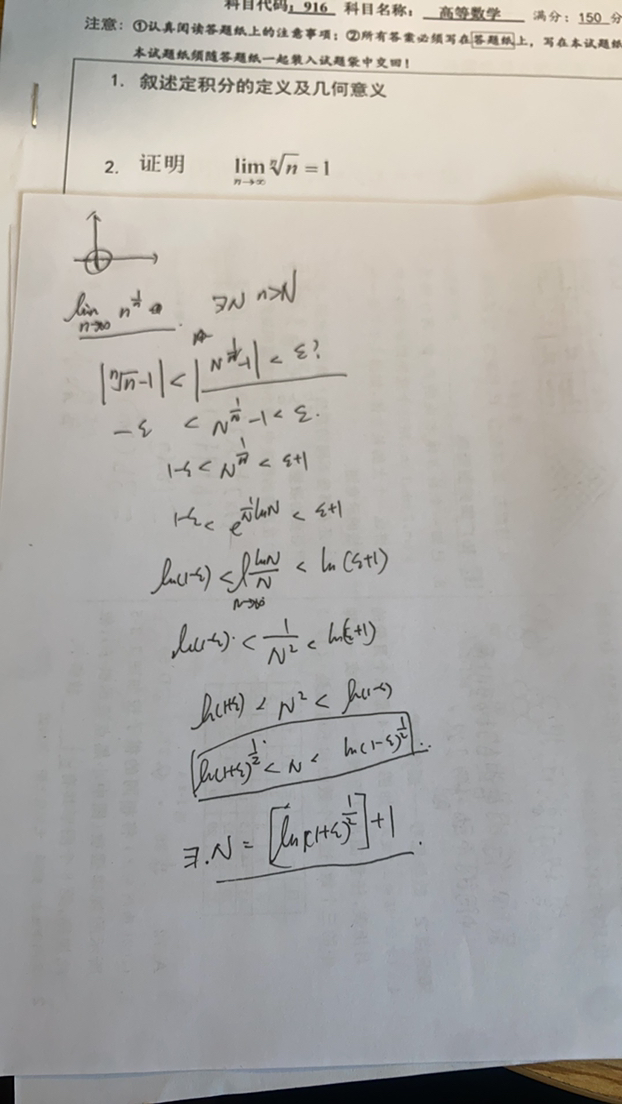 科目代码: 916 科目名称: 高等数学 满分: 150 分
注意: ①认真阅读答题纸上的注意事项; ②所有答案必须写在答题纸上, 写在本试题纸
本试题纸须随答题纸一起装入试题袋中交回!
1. 叙述定积分的定义及几何意义
2. 证明 lim n→∞ ⁿ√n = 1
lim n→∞ n^(1/n) ∃N n>N
|ⁿ√n-1| < |N^(1/N)-1| < ε?
-ε < N^(1/N) -1 < ε.
1-ε < N^(1/N) < ε+1
1-ε < e^(1/N lnN) < ε+1
ln(1-ε) < lnN/N < ln(ε+1)
N→∞
ln(1-ε) < 1/N² < ln(ε+1)
ln(1+ε) < N² < ln(1-ε)
ln(1+ε)^(1/2) < N < ln(1-ε)^(1/2)
∃.N = [ln(1+ε)^(1/2)]+1.